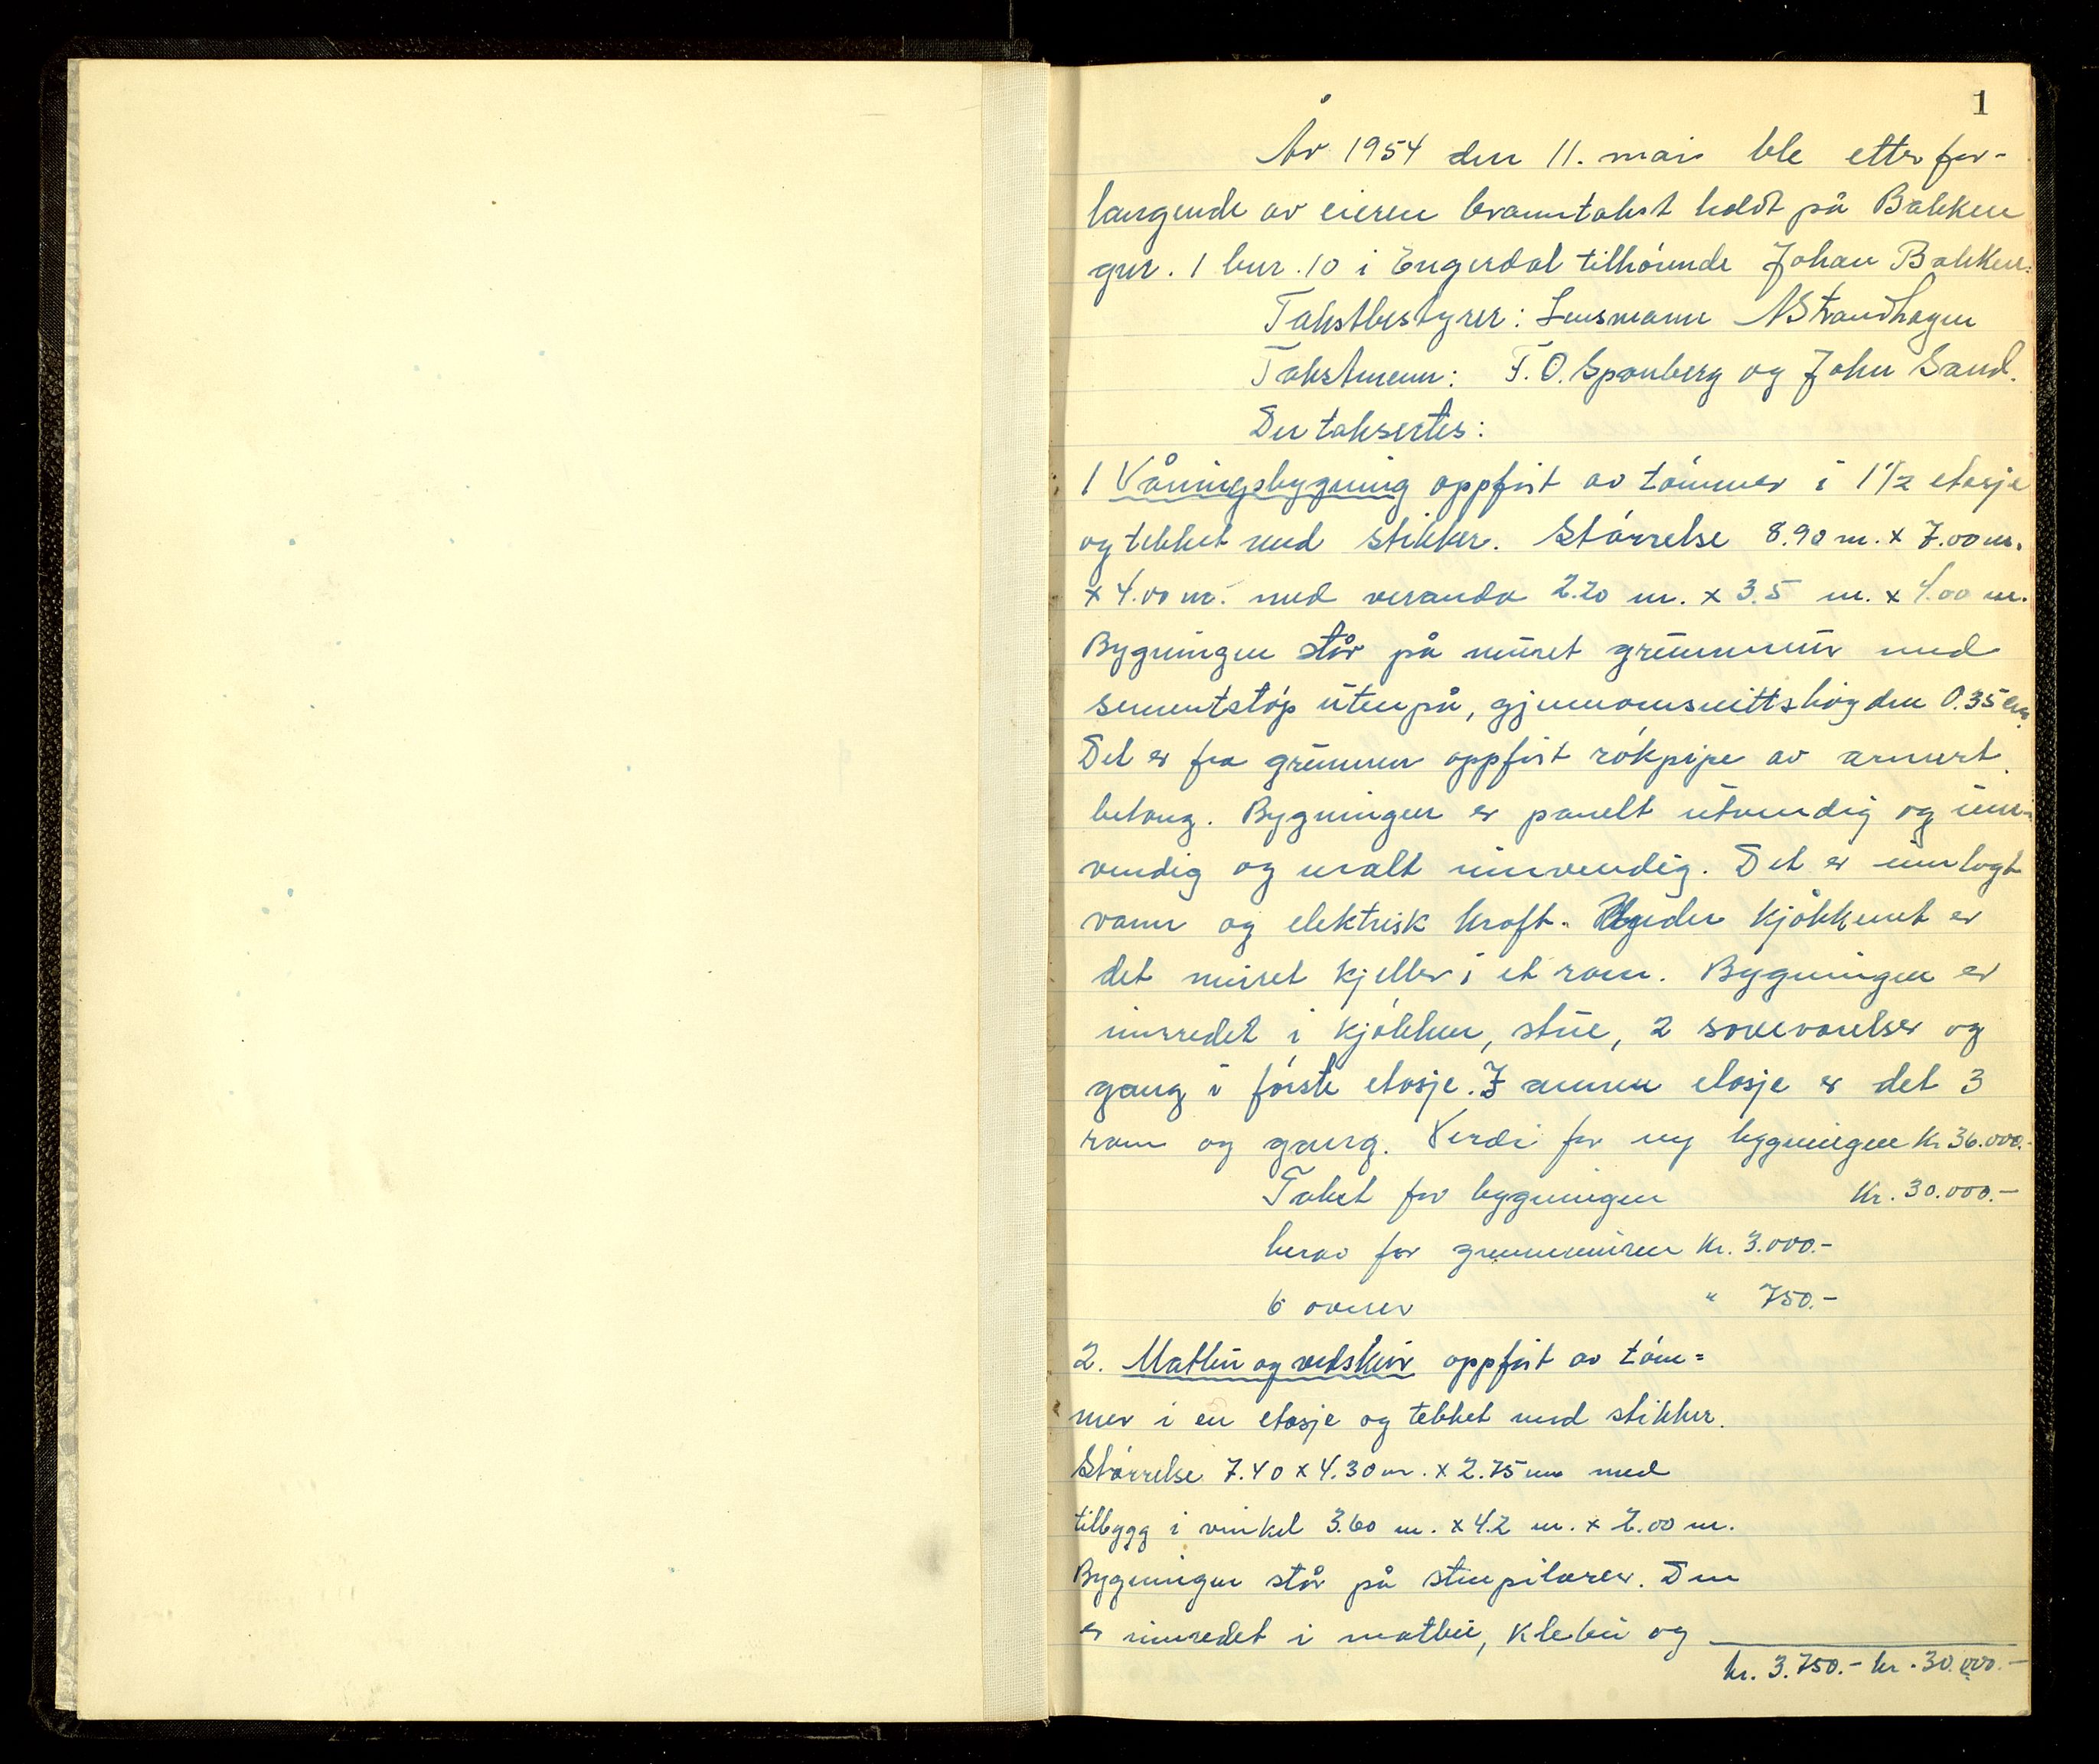 1
År 1954 den 11. mai ble etter for-
langende av eieren branntakst holdt på Bakken
gnr. 1 bnr. 10 i Engerdal tilhørende Johan Bakken.
Takstbestyrer: Lensmann N Strandhagen
Takstmenn: T. O. Spanberg og John Sand.
Der taksertes:
1 Våningsbygning oppført av tømmer i 1 1/2 etasje
og tekket med stikker. Størrelse 8.90 m. x 7.00 m.
x 4.00 m. med veranda 2.20 m. x 3.5 m. x 4.00 m.
Bygningen står på muret grunnmur med
sementstøp utenpå, gjennomsnittshøgden 0.35 cm.
Det er fra grunnen oppført røkpipe av armert
betong. Bygningen er panelt utvendig og inn-
vendig og malt innvendig. Det er innlagt
vann og elektrisk kraft. Under kjøkkenet er
det muret kjeller i et rom. Bygningen er
innredet i kjøkken, stue, 2 soveværelser og
gang i første etasje. I annen etasje er det 3
rom og gang. Verdi for ny bygningen Kr. 36.000.-
Takst for bygningen Kr. 30.000.-
herav for grunnmuren Kr. 3.000.-
6 ovner " 750.-
2. Matbu og vedskur oppført av tøm=
mer i en etasje og tekket med stikker.
Størrelse 7.40 x 4.30 m. x 2.75 m med
tilbygg i vinkel 3.60 m. x 4.2 m. x 2.00 m.
Bygningen står på stenpilarer. Den
er innredet i matbu, klebu og
kr. 3.750.- kr. 30.000.-